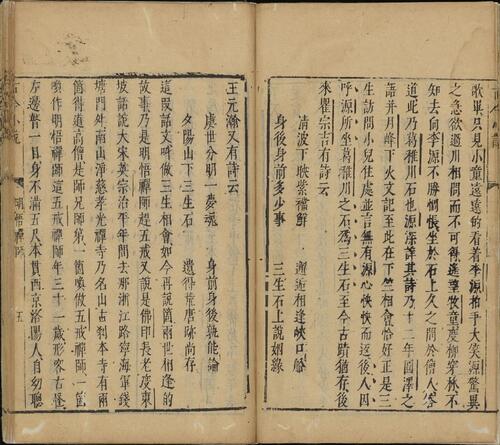 歌畢只見小童遠遠的看着李源拍手大笑源驚異
之急欲過川相問而不可得遙望牧童度柳穿林不
知去向李源不勝惆悵坐於石上久之問於僧人答
道此乃葛稚川石也源深詳其詩乃十二年圓澤之
語并月峰下火文記至此在下竺相會恰好正是三
生訪問小兒住處並言無有源心怏怏而返後人因
呼源所坐葛稚川之石爲三生石至今古蹟猶存後
來瞿宗吉有詩云
清波下映紫襠鮮 邂逅相逢峽口船
身後身前多少事 三生石上說姻緣
王元瀚又有詩云
處世分明一夢魂 身前身後孰能論
夕陽山下三生石 遺得荒唐跡尚存
這段話文叫做三生相會如今再說箇兩世相逢的
故事乃是明悟禪師趕五戒又說是佛印長老度東
坡話說大宋英宗治平年間去那浙江路寧海軍錢
塘門外南山淨慈孝光禪寺乃名山古刹本寺有兩
箇得道高僧是師兄師弟一箇喚做五戒禪師一箇
喚作明悟禪師這五戒禪師年三十一歲形容古怪
左邊瞽一目身不滿五尺本貫西京洛陽人自幼聰
古今小說 明悟禪師 五